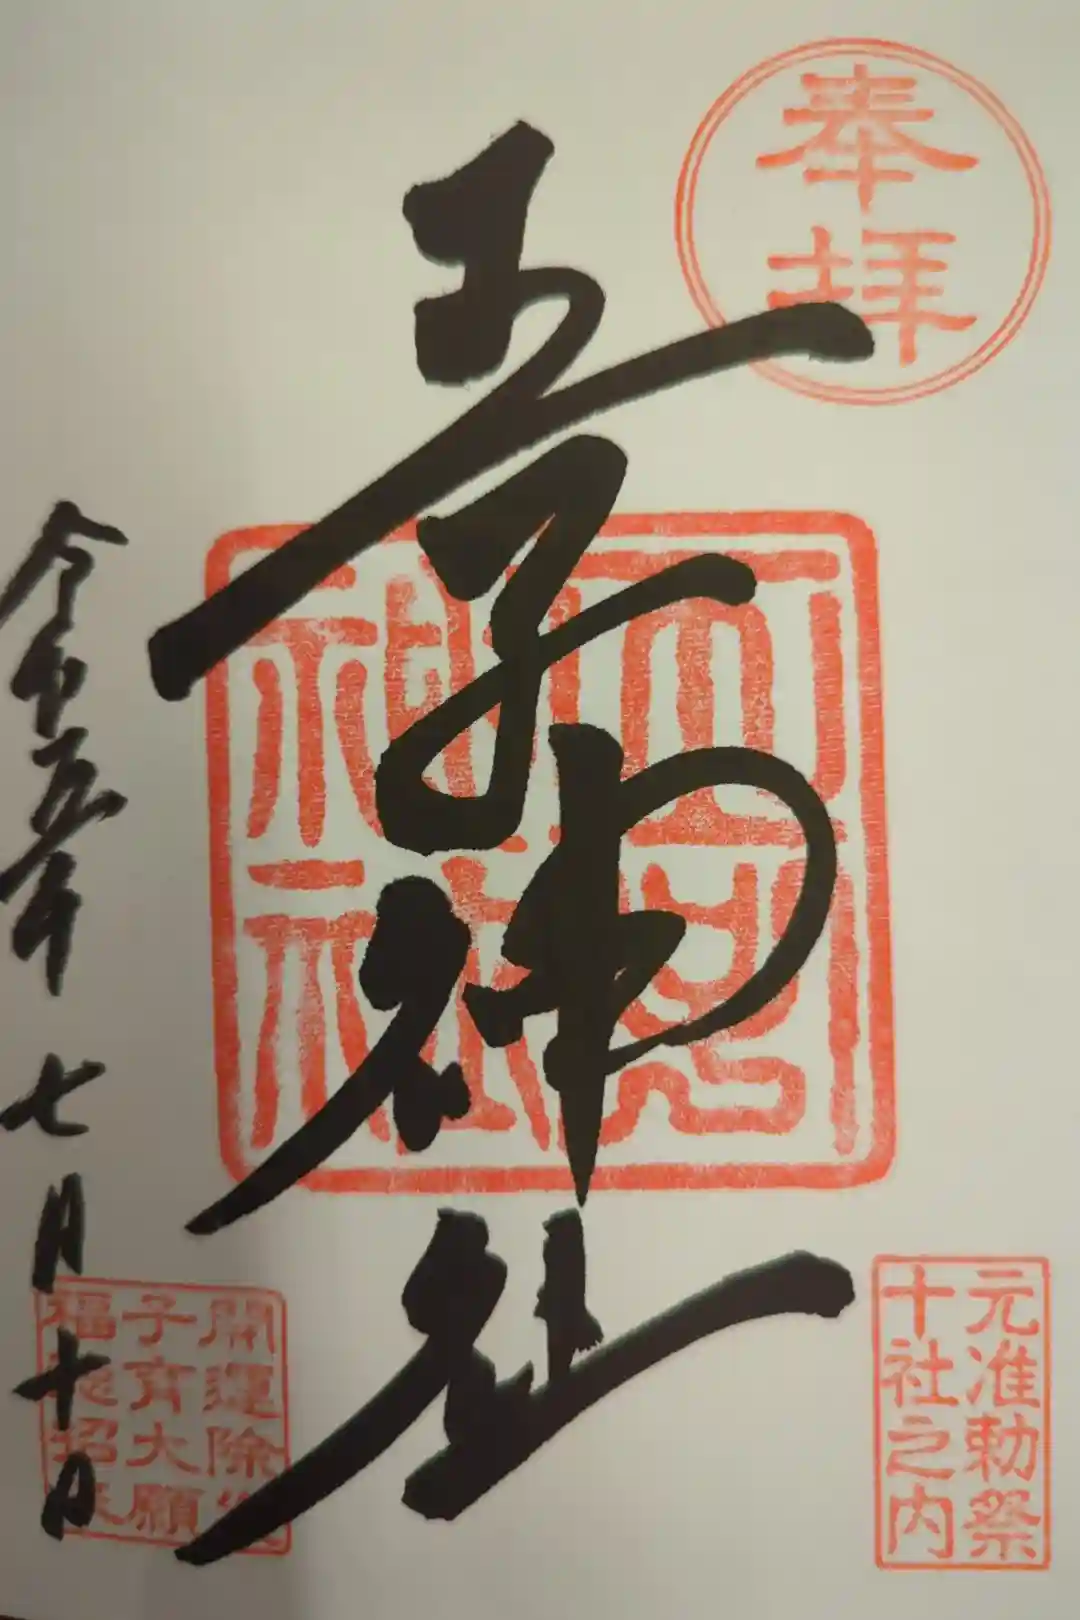 奉拝
王子神社
王子
神社
元准勅祭
十社之内
令和五年 七月十日
開運除
子育大願
福